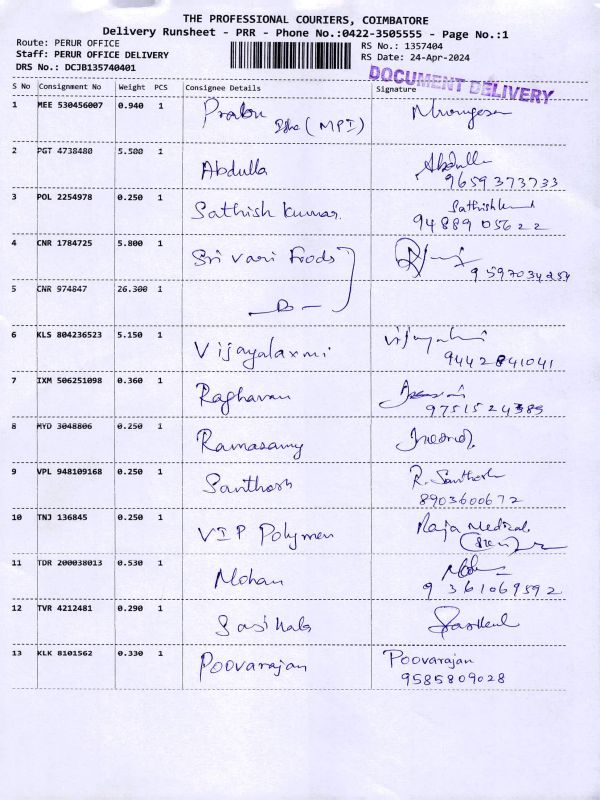 THE PROFESSIONAL COURIERS, COIMBATORE
Delivery Runsheet - PRR - Phone No.:0422-3505555 - Page No.:1
Route: PERUR OFFICE
Staff: PERUR OFFICE DELIVERY
DRS No.: DCJB135740401
RS No.: 1357404
RS Date: 24-Apr-2024
DOCUMENT DELIVERY
S No Consignment No Weight PCS Consignee Details Signature
1 MEE 530456007 0.940 1 Prabu (MPI) Murugesan
2 PGT 4738480 5.500 1 Abdulla Abdulla
9659373733
3 POL 2254978 0.250 1 Sathish kumar Sathishkum
9488905622
4 CNR 1784725 5.800 1 Sri vari Foods
9597034259
5 CNR 974847 26.300 1 - Do -
6 KLS 804236523 5.150 1 Vijayalaxmi Vijayalaxmi
9442841041
7 IXM 506251098 0.360 1 Raghavan
9751524385
8 MYD 3048806 0.250 1 Ramasamy
9 VPL 948109168 0.250 1 Santhosh R. Santhosh
8903600672
10 TNJ 136845 0.250 1 VIP Polymer Raja Medical
11 TDR 200038013 0.530 1 Mohan Mohan
9361069592
12 TVR 4212481 0.290 1 Sasikala Sasikala
13 KLK 8101562 0.330 1 Poovarajan Poovarajan
9585809028